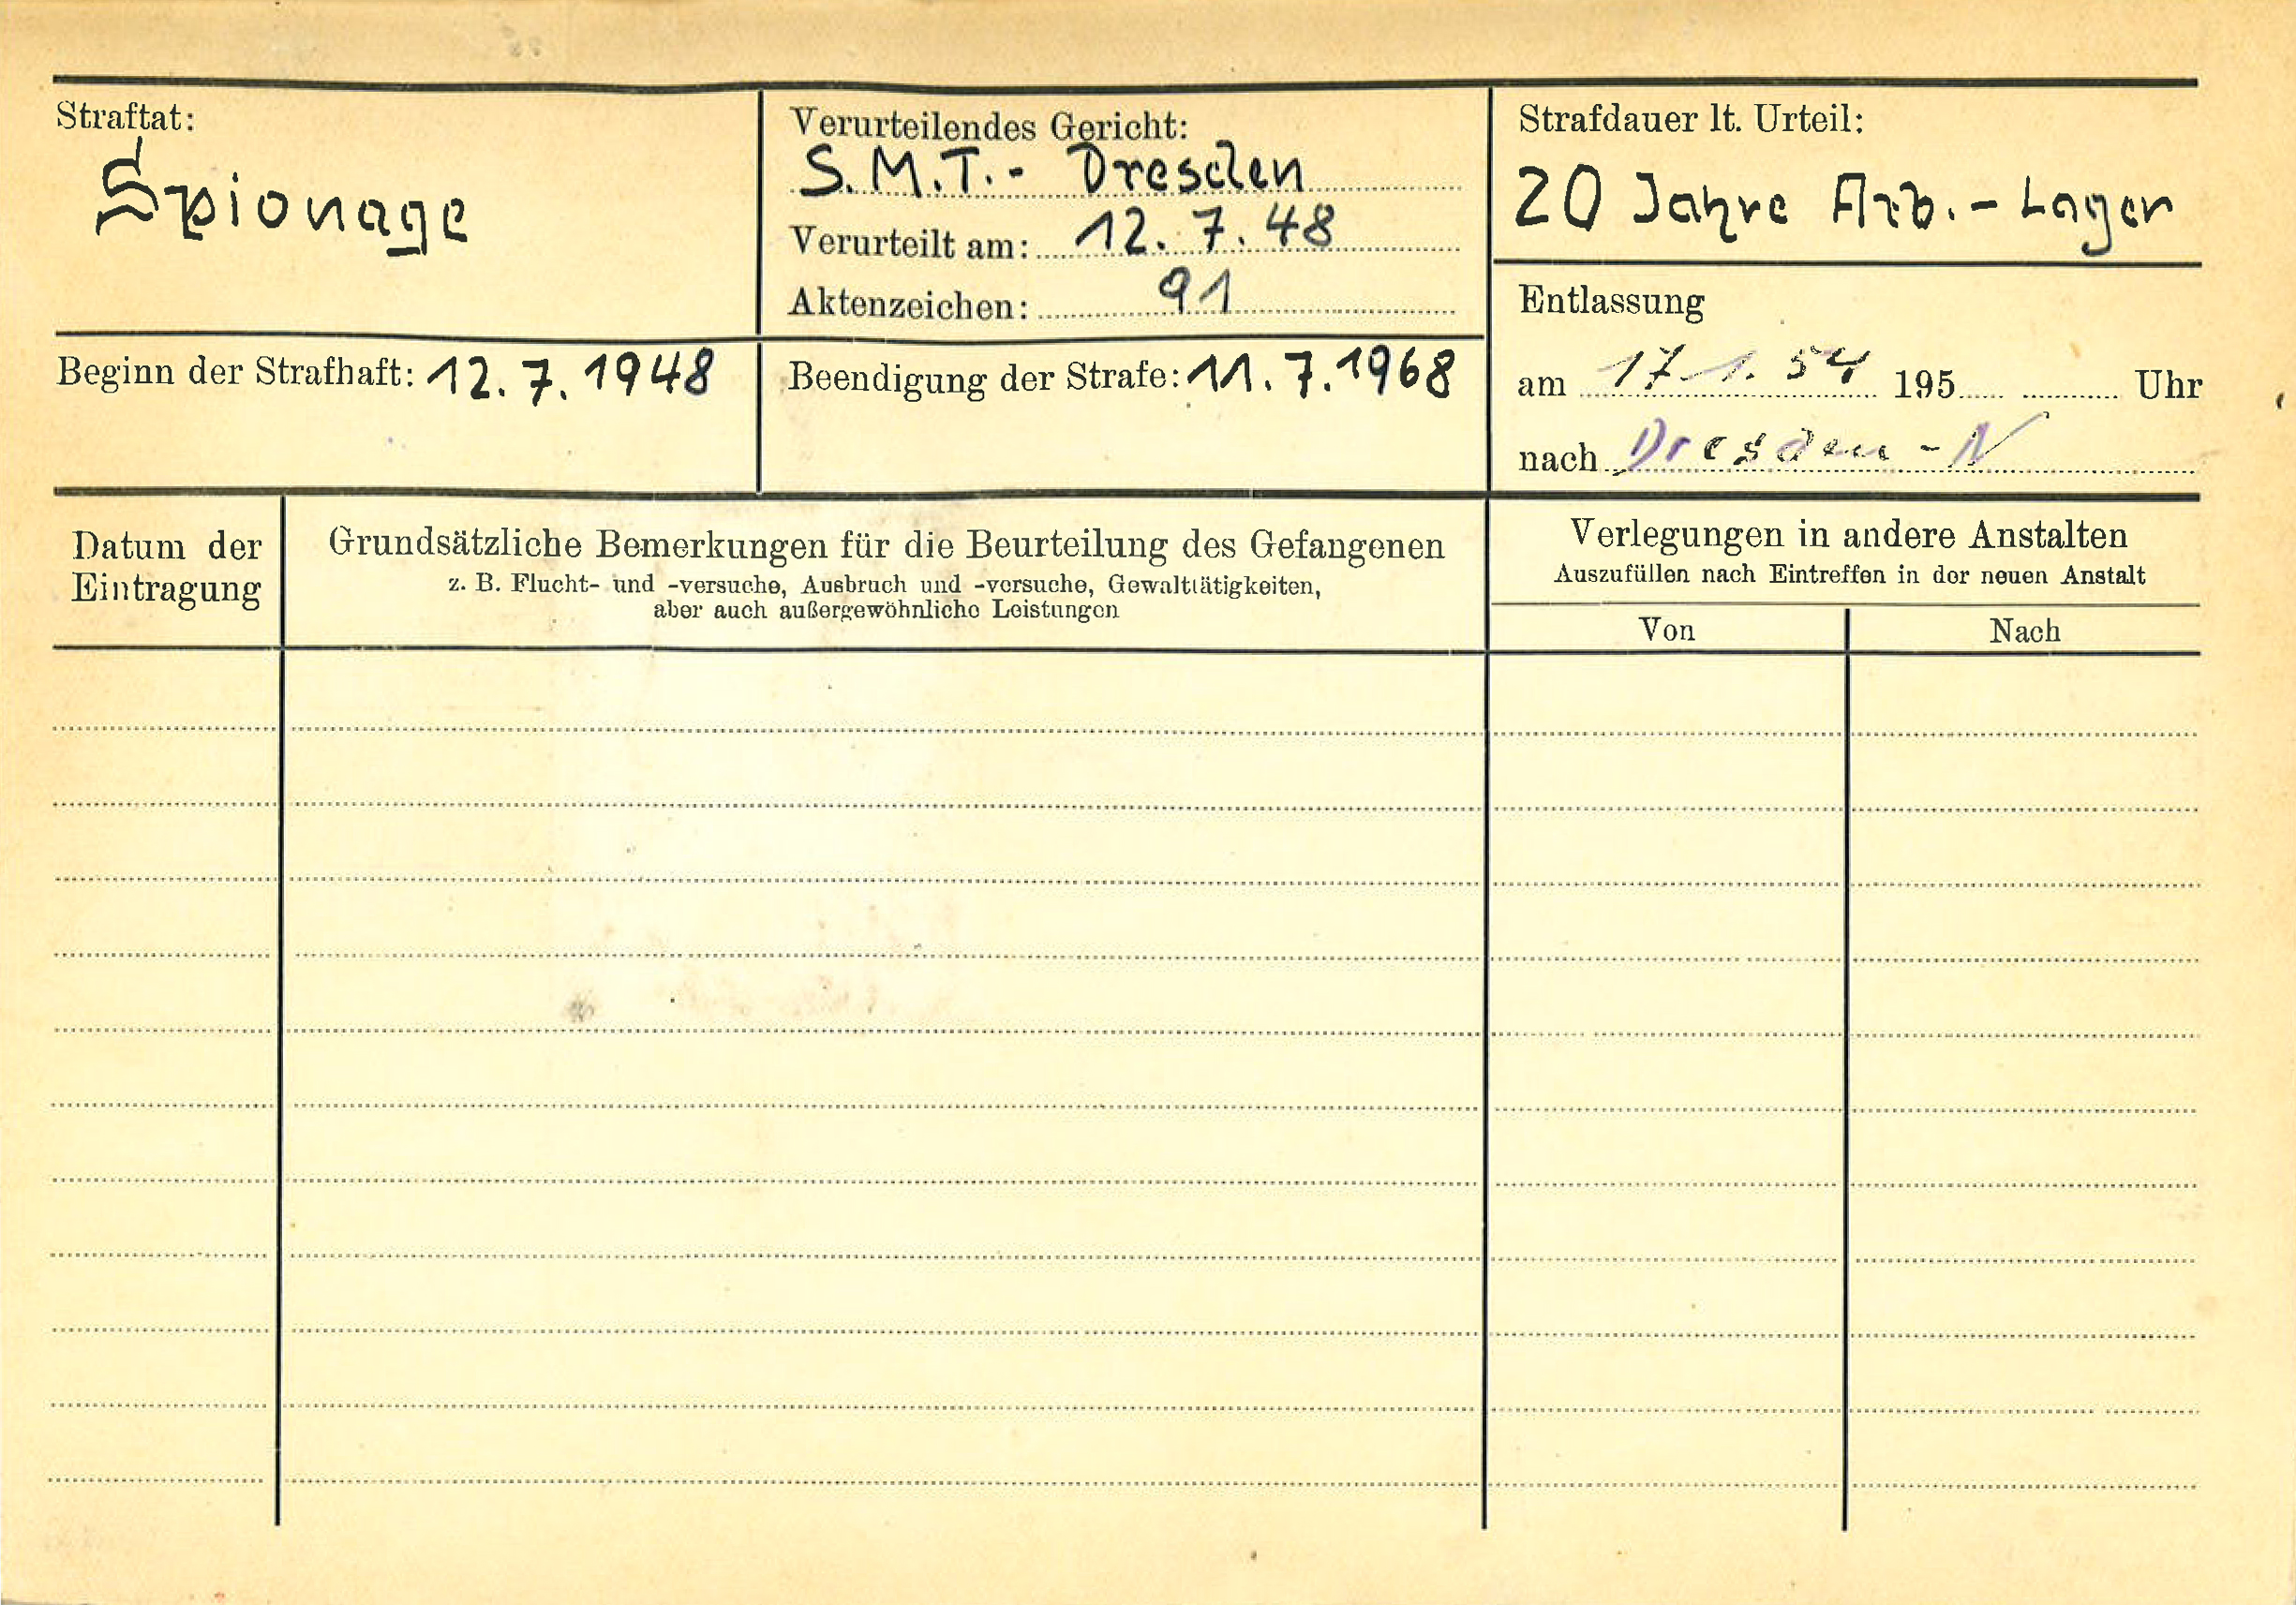 Straftat:
Spionage
Verurteilendes Gericht:
S.M.T.- Dresden
Verurteilt am: 12.7.48
Aktenzeichen: 91
Strafdauer lt. Urteil:
20 Jahre Arb.-Lager
Entlassung
am 17.1.54 195 Uhr
nach Dresden-N
Beginn der Strafhaft: 12.7.1948
Beendigung der Strafe: 11.7.1968
Datum der
Eintragung
Grundsätzliche Bemerkungen für die Beurteilung des Gefangenen
z. B. Flucht- und -versuche, Ausbruch und -versuche, Gewalttätigkeiten,
aber auch außergewöhnliche Leistungen
Verlegungen in andere Anstalten
Auszufüllen nach Eintreffen in der neuen Anstalt
Von
Nach